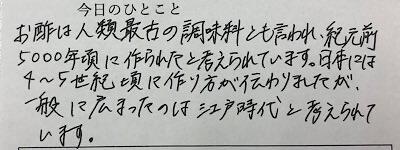 今日のひとこと
お酢は人類最古の調味料とも言われ、紀元前
5000年頃に作られたと考えられています。日本には
4～5世紀頃に作り方が伝わりましたが、
一般に広まったのは江戸時代と考えられて
います。